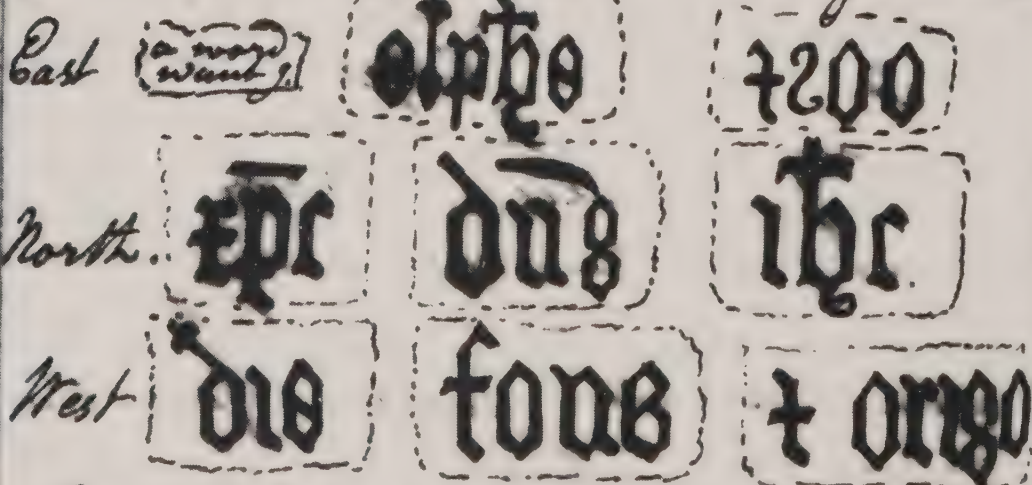 East a word wantg. alpha
North. xp̄c dn̄s ihc
West dis fons ⁊ origo